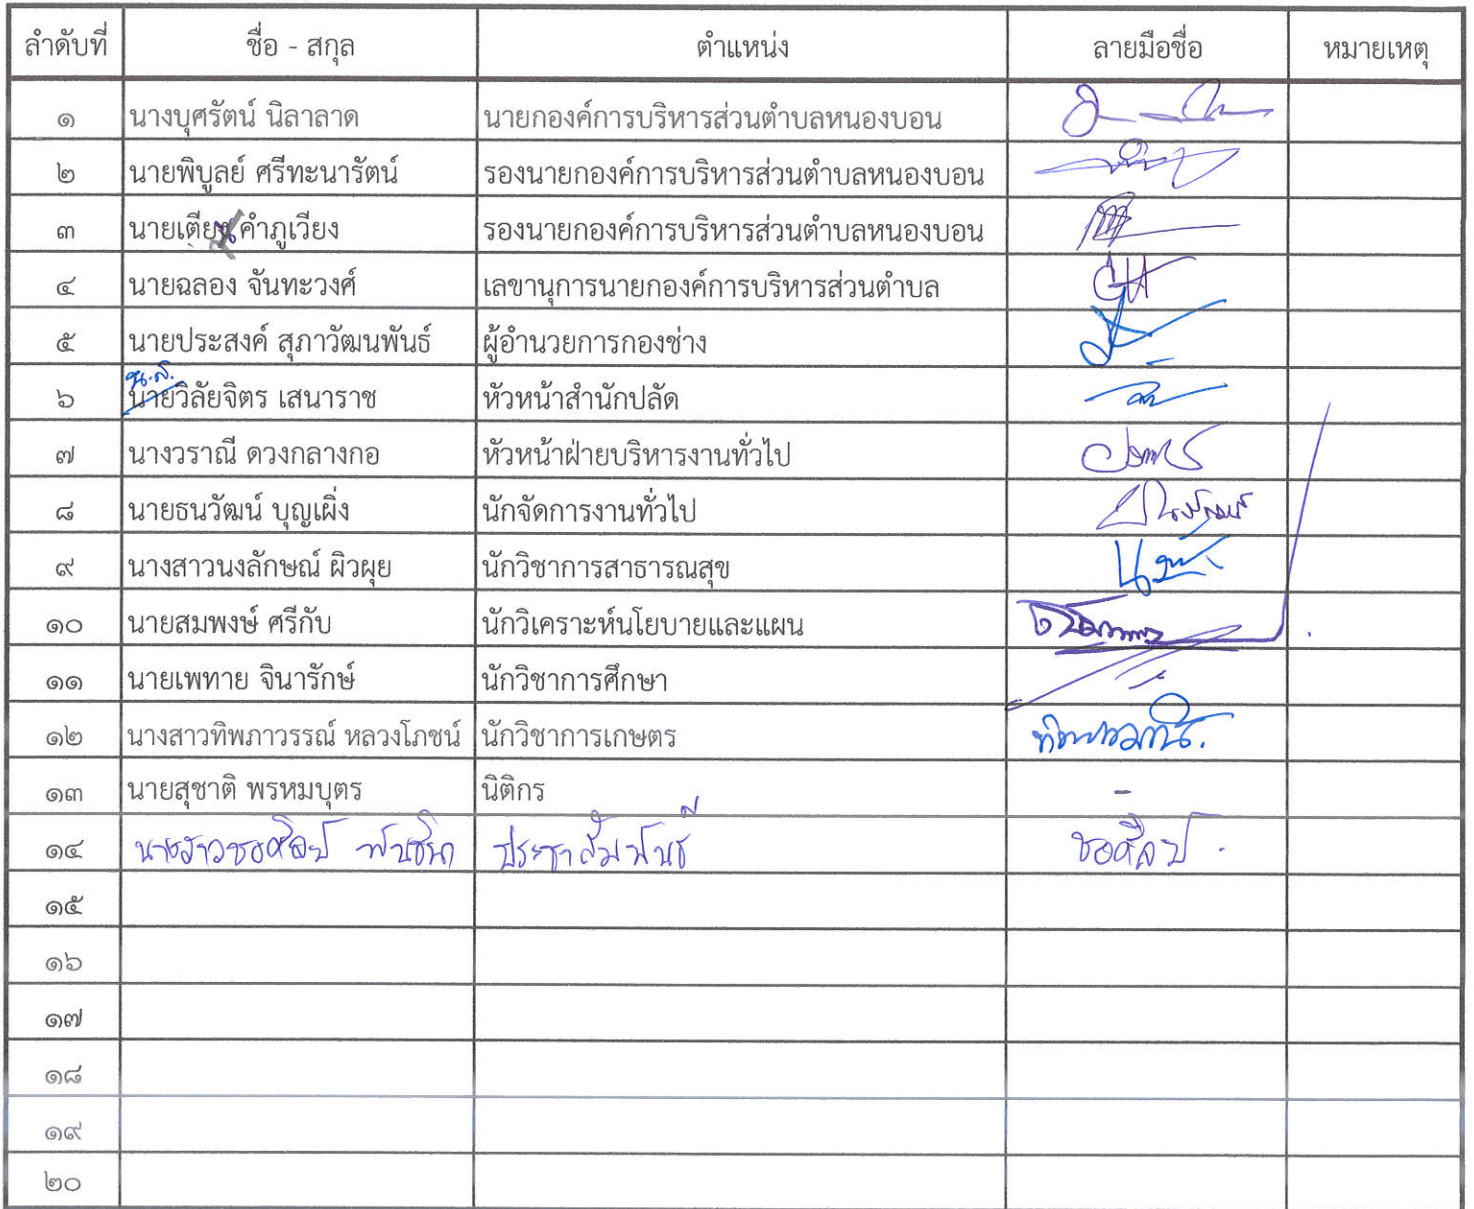 ลำดับที่ ชื่อ - สกุล ตำแหน่ง ลายมือชื่อ หมายเหตุ
๑ นางบุศรัตน์ นิลาลาด นายกองค์การบริหารส่วนตำบลหนองบอน
๒ นายพิบูลย์ ศรีทะนารัตน์ รองนายกองค์การบริหารส่วนตำบลหนองบอน
๓ นายเตียน คำภูเวียง รองนายกองค์การบริหารส่วนตำบลหนองบอน
๔ นายฉลอง จันทะวงศ์ เลขานุการนายกองค์การบริหารส่วนตำบล
๕ นายประสงค์ สุภาวัฒนพันธ์ ผู้อำนวยการกองช่าง
น.ส.
๖ นายวิลัยจิตร เสนาราช หัวหน้าสำนักปลัด
๗ นางวราณี ดวงกลางกอ หัวหน้าฝ่ายบริหารงานทั่วไป
๘ นายธนวัฒน์ บุญเผิ่ง นักจัดการงานทั่วไป ธนวัฒน์
๙ นางสาวนงลักษณ์ ผิวผุย นักวิชาการสาธารณสุข
๑๐ นายสมพงษ์ ศรีกับ นักวิเคราะห์นโยบายและแผน
๑๑ นายเพทาย จินารักษ์ นักวิชาการศึกษา
๑๒ นางสาวทิพภาวรรณ์ หลวงโภชน์ นักวิชาการเกษตร
๑๓ นายสุชาติ พรหมบุตร นิติกร -
๑๔ นางสาวช่อศิลป์ ประชาสัมพันธ์ ช่อศิลป์.
๑๕
๑๖
๑๗
๑๘
๑๙
๒๐